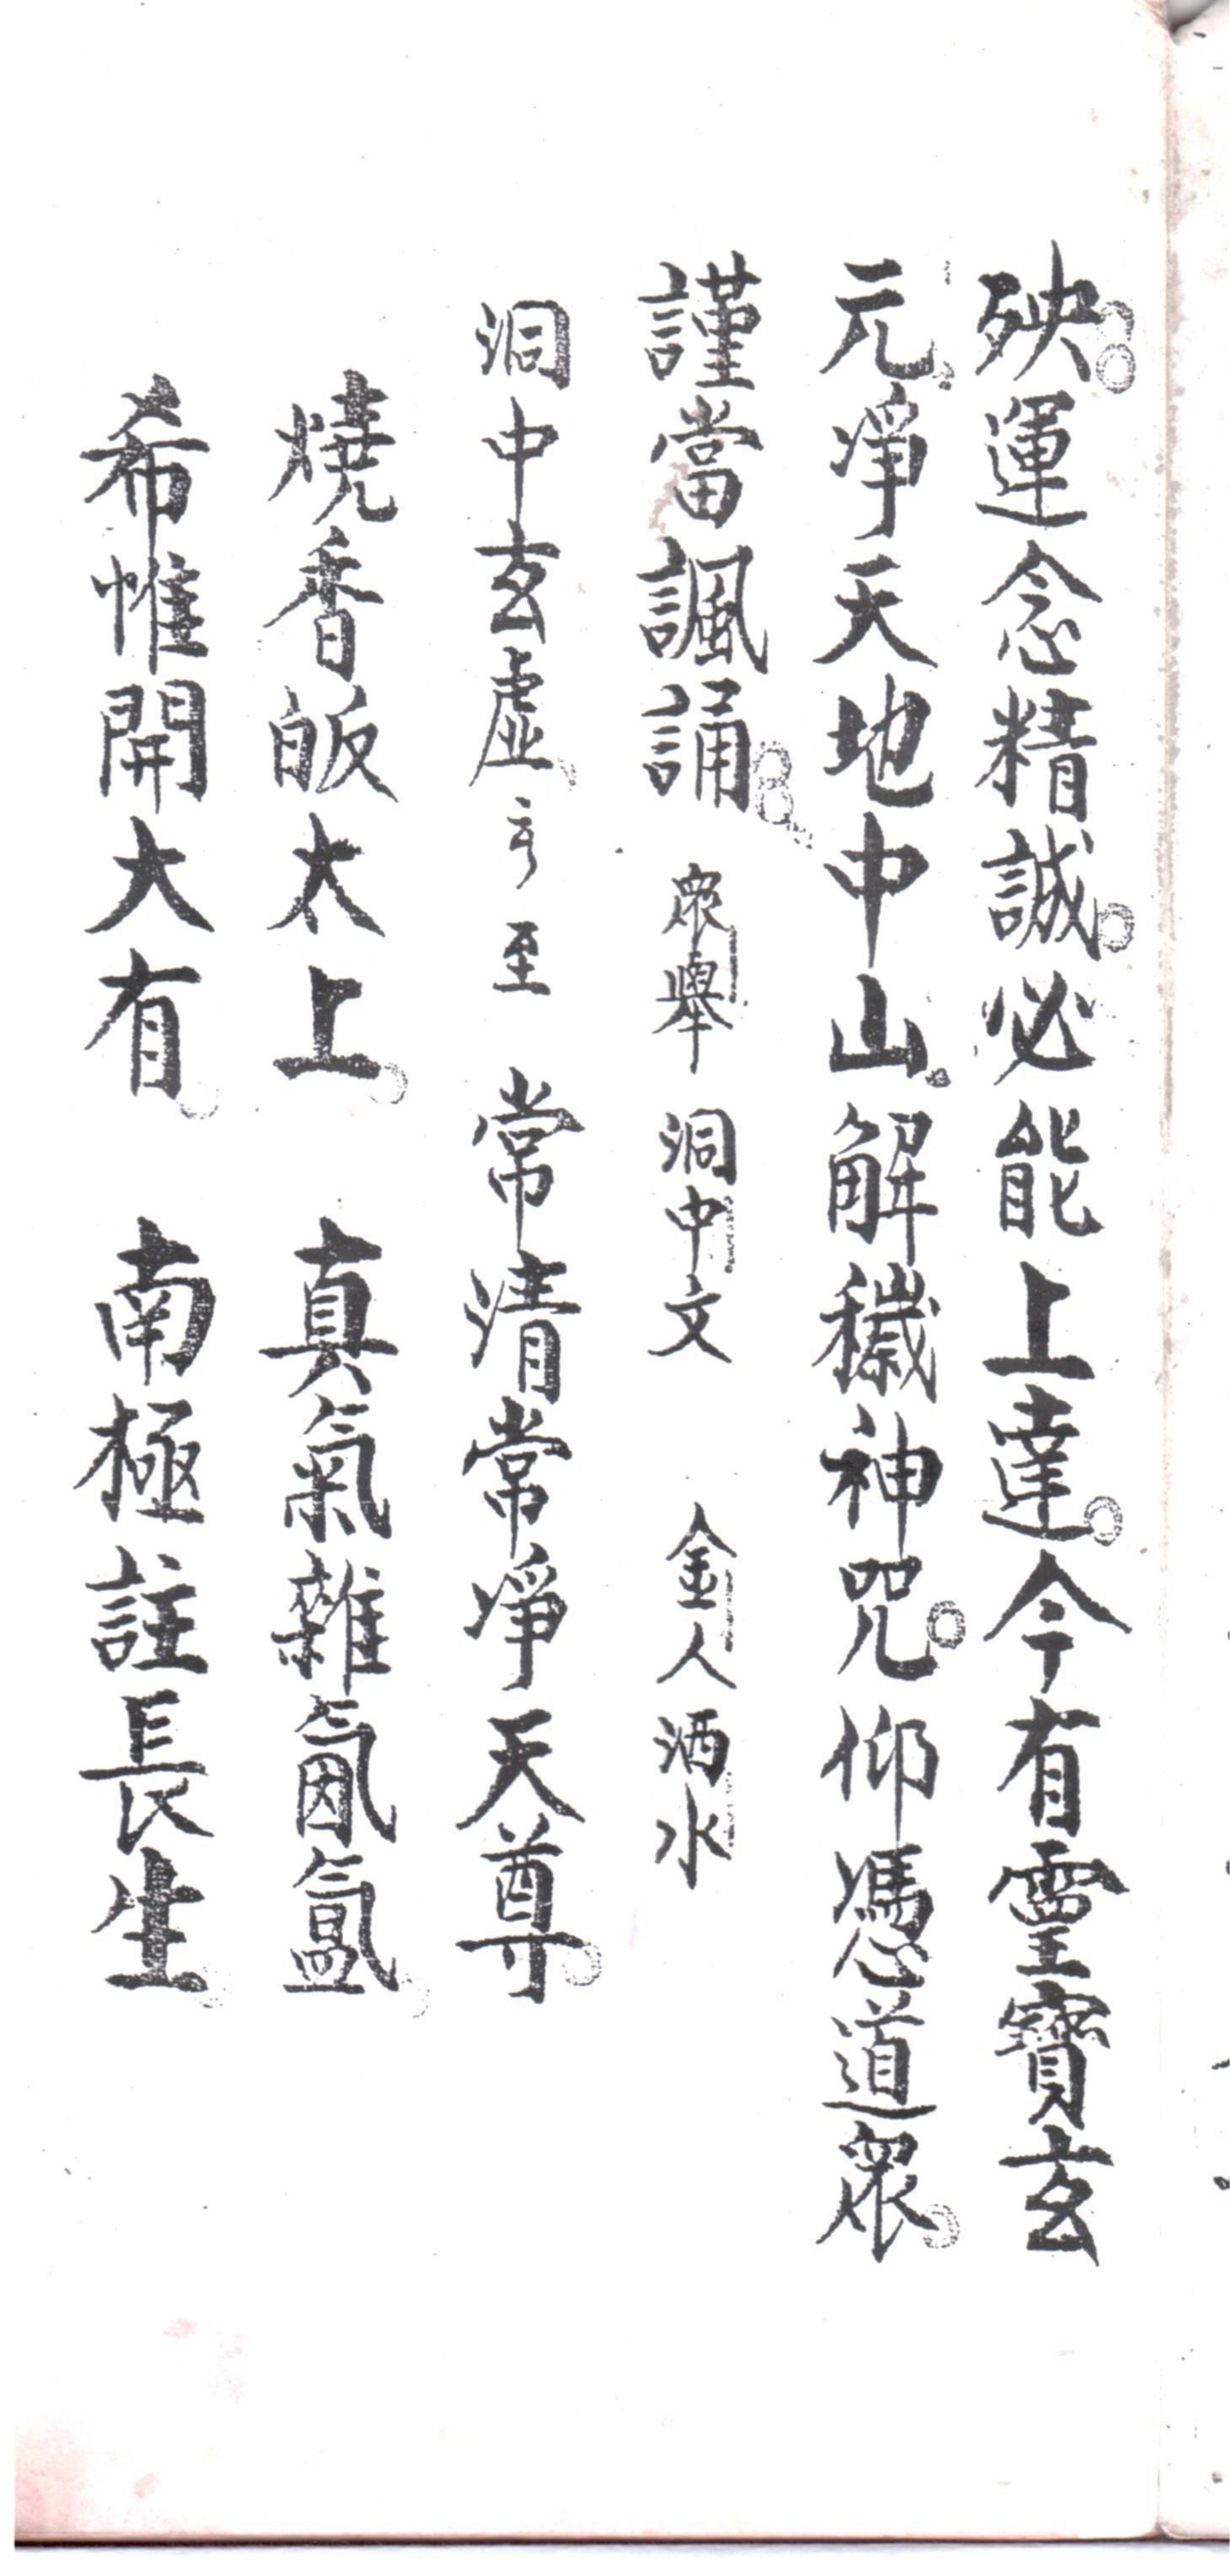 殃運念精誠必能上達今有靈寶玄
元淨天地中山解穢神咒仰憑道眾
謹當諷誦 眾舉 洞中文 金人洒水
洞中玄虛云至 常清常淨天尊
燒香皈太上 真氣雜氤氳
希惟開大有 南極註長生